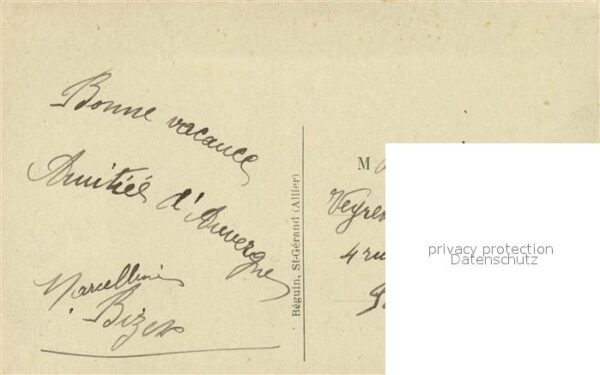 Bonne vacance
Amitiés d'Auvergne
Marcelline
Bizet
Béguin, St-Gérand (Allier)
M
Veyre
4 ru
privacy protection
Datenschutz